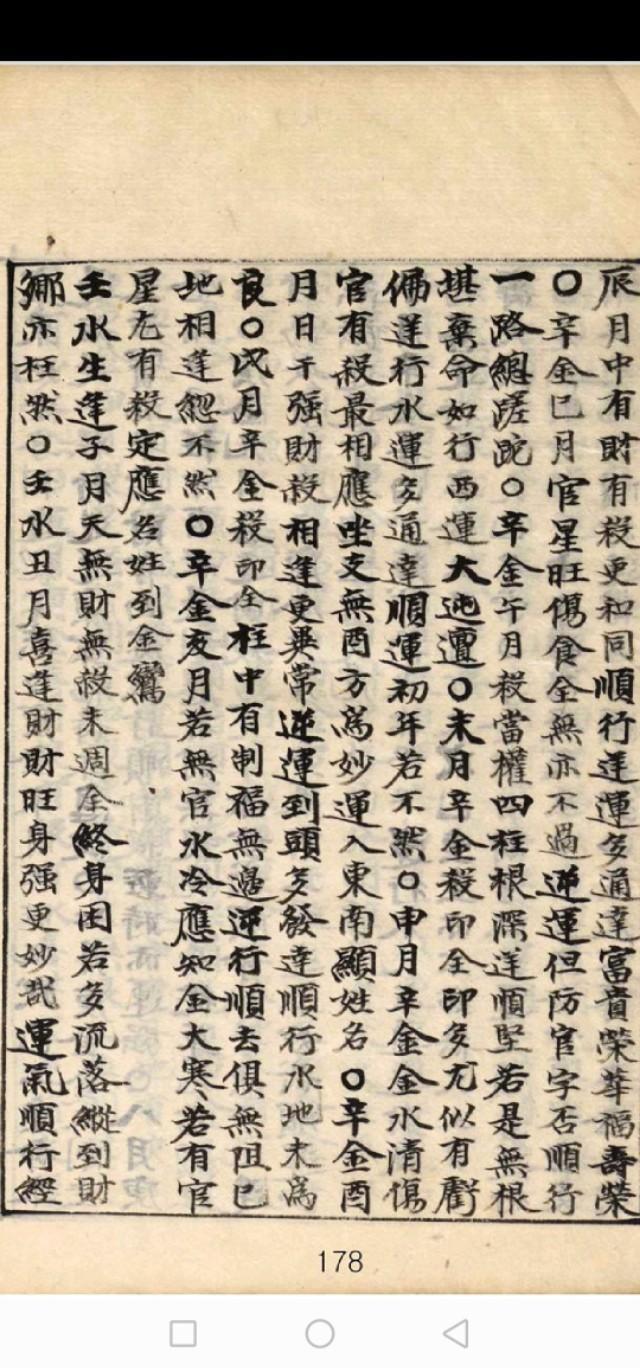 辰月中有財有殺更和同順行逆運多通達富貴榮華福壽榮
〇辛金巳月官星旺傷食全無亦不過逆運但防官字否順行
一路總蹉跎〇辛金午月殺當權四柱根深逆順堅若是無根
堪棄命如行西運大迍邅〇未月辛金殺印全印多尤似有虧
偏逆行水運多通達順運初年若不然〇申月辛金金水清傷
官有殺最相應坐支無酉方為妙運入東南顯姓名〇辛金酉
月日干强財殺相逢更異常逆運到頭多發達順行水地未為
良〇戌月辛金殺印全柱中有制福無邉逆行順去俱無阻巳
地相逢緫不然〇辛金亥月若無官水冷應知金大寒若有官
星尤有殺定應名姓到金鸞
壬水生逢子月天無財無殺未週全終身困若多流落縱到財
鄉亦枉然〇壬水丑月喜逢財財旺身强更妙哉運氣順行經
178